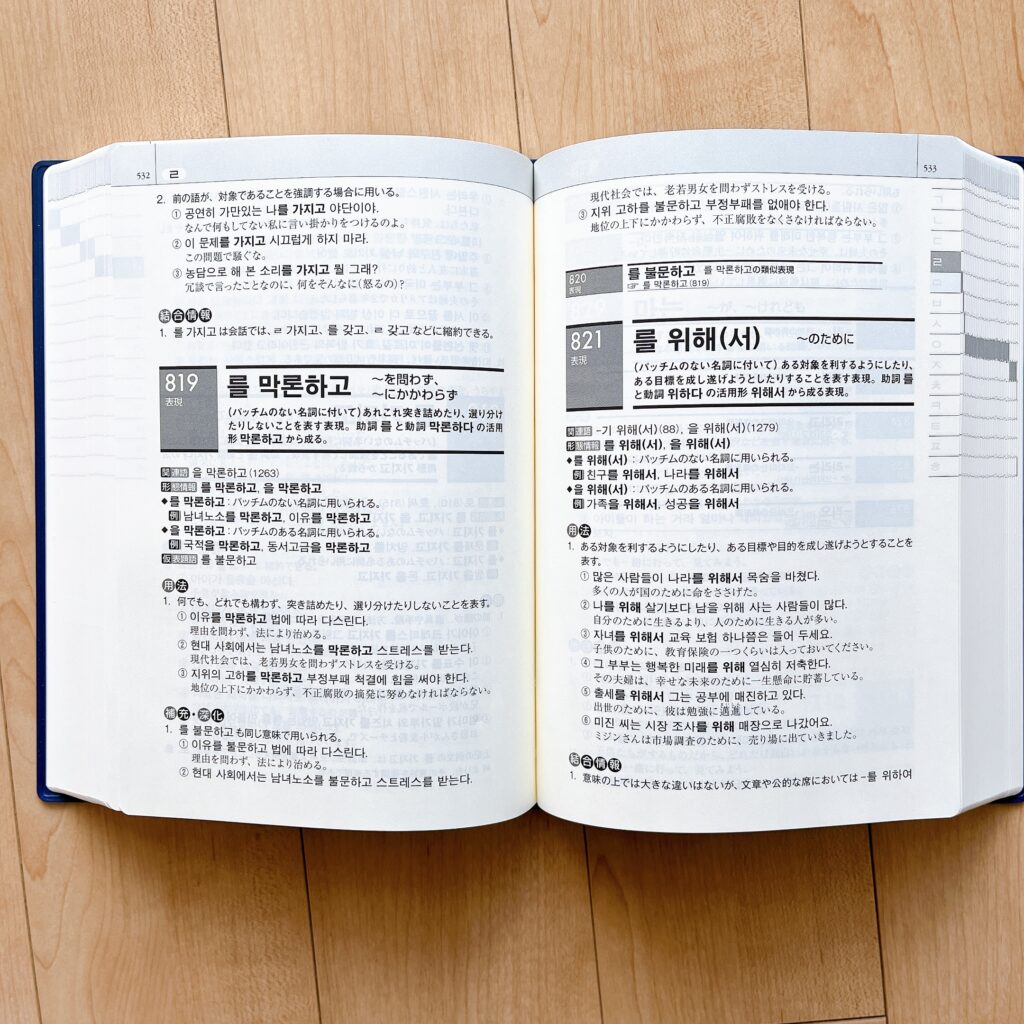 532 ㄹ
2. 前の語が、対象であることを強調する場合に用いる。
① 공연히 가만있는 나를 가지고 야단이야.
なんで何もしてない私に言い掛かりをつけるのよ。
② 이 문제를 가지고 시끄럽게 하지 마라.
この問題で騒ぐな。
③ 농담으로 해 본 소리를 가지고 뭘 그래?
冗談で言ったことなのに、何をそんなに(怒るの)?
結合情報
1. 를 가지고 は会話では、ㄹ 가지고、를 갖고、ㄹ 갖고 などに縮約できる。
819
表現
를 막론하고
〜を問わず、
〜にかかわらず
(パッチムのない名詞に付いて)あれこれ突き詰めたり、選り分け
たりしないことを表す表現。助詞 를 と動詞 막론하다 の活用
形 막론하고 から成る。
関連語 을 막론하고(1263)
形態情報 를 막론하고, 을 막론하고
◆를 막론하고:パッチムのない名詞に用いられる。
例 남녀노소를 막론하고, 이유를 막론하고
◆을 막론하고:パッチムのある名詞に用いられる。
例 국적을 막론하고, 동서고금을 막론하고
仮表題語 를 불문하고
用法
1. 何でも、どれでも構わず、突き詰めたり、選り分けたりしないことを表す。
① 이유를 막론하고 법에 따라 다스린다.
理由を問わず、法により治める。
② 현대 사회에서는 남녀노소를 막론하고 스트레스를 받는다.
現代社会では、老若男女を問わずストレスを受ける。
③ 지위의 고하를 막론하고 부정부패 척결에 힘을 써야 한다.
地位の上下にかかわらず、不正腐敗の摘発に努めなければならない。
補充・深化
1. 를 불문하고 も同じ意味で用いられる。
① 이유를 불문하고 법에 따라 다스린다.
理由を問わず、法により治める。
② 현대 사회에서는 남녀노소를 불문하고 스트레스를 받는다.
533
現代社会では、老若男女を問わずストレスを受ける。
③ 지위 고하를 불문하고 부정부패를 없애야 한다.
地位の上下にかかわらず、不正腐敗をなくさなければならない。
820
表現
를 불문하고 를 막론하고の類似表現
☞ 를 막론하고(819)
821
表現
를 위해(서) 〜のために
(パッチムのない名詞に付いて)ある対象を利するようにしたり、
ある目標を成し遂げようとしたりすることを表す表現。助詞 를
と動詞 위하다 の活用形 위해서 から成る表現。
関連語 -기 위해(서)(88), 을 위해(서)(1279)
形態情報 를 위해(서), 을 위해(서)
◆를 위해(서):パッチムのない名詞に用いられる。
例 친구를 위해서, 나라를 위해서
◆을 위해(서):パッチムのある名詞に用いられる。
例 가족을 위해서, 성공을 위해서
用法
1. ある対象を利するようにしたり、ある目標や目的を成し遂げようとすることを
表す。
① 많은 사람들이 나라를 위해서 목숨을 바쳤다.
多くの人が国のために命をささげた。
② 나를 위해 살기보다 남을 위해 사는 사람들이 많다.
自分のために生きるより、人のために生きる人が多い。
③ 자녀를 위해서 교육 보험 하나쯤은 들어 두세요.
子供のために、教育保険の一つくらいは入っておいてください。
④ 그 부부는 행복한 미래를 위해 열심히 저축한다.
その夫婦は、幸せな未来のために一生懸命に貯蓄している。
⑤ 출세를 위해서 그는 공부에 매진하고 있다.
出世のために、彼は勉強に邁進している。
⑥ 미진 씨는 시장 조사를 위해 매장으로 나갔어요.
ミジンさんは市場調査のために、売り場に出ていきました。
結合情報
1. 意味の上では大きな違いはないが、文章や公的な席においては -를 위하여
ㄱ
ㄴ
ㄷ
ㄹ
ㅁ
ㅂ
ㅅ
ㅇ
ㅈ
ㅊ
ㅋ
ㅌ
ㅍ
ㅎ